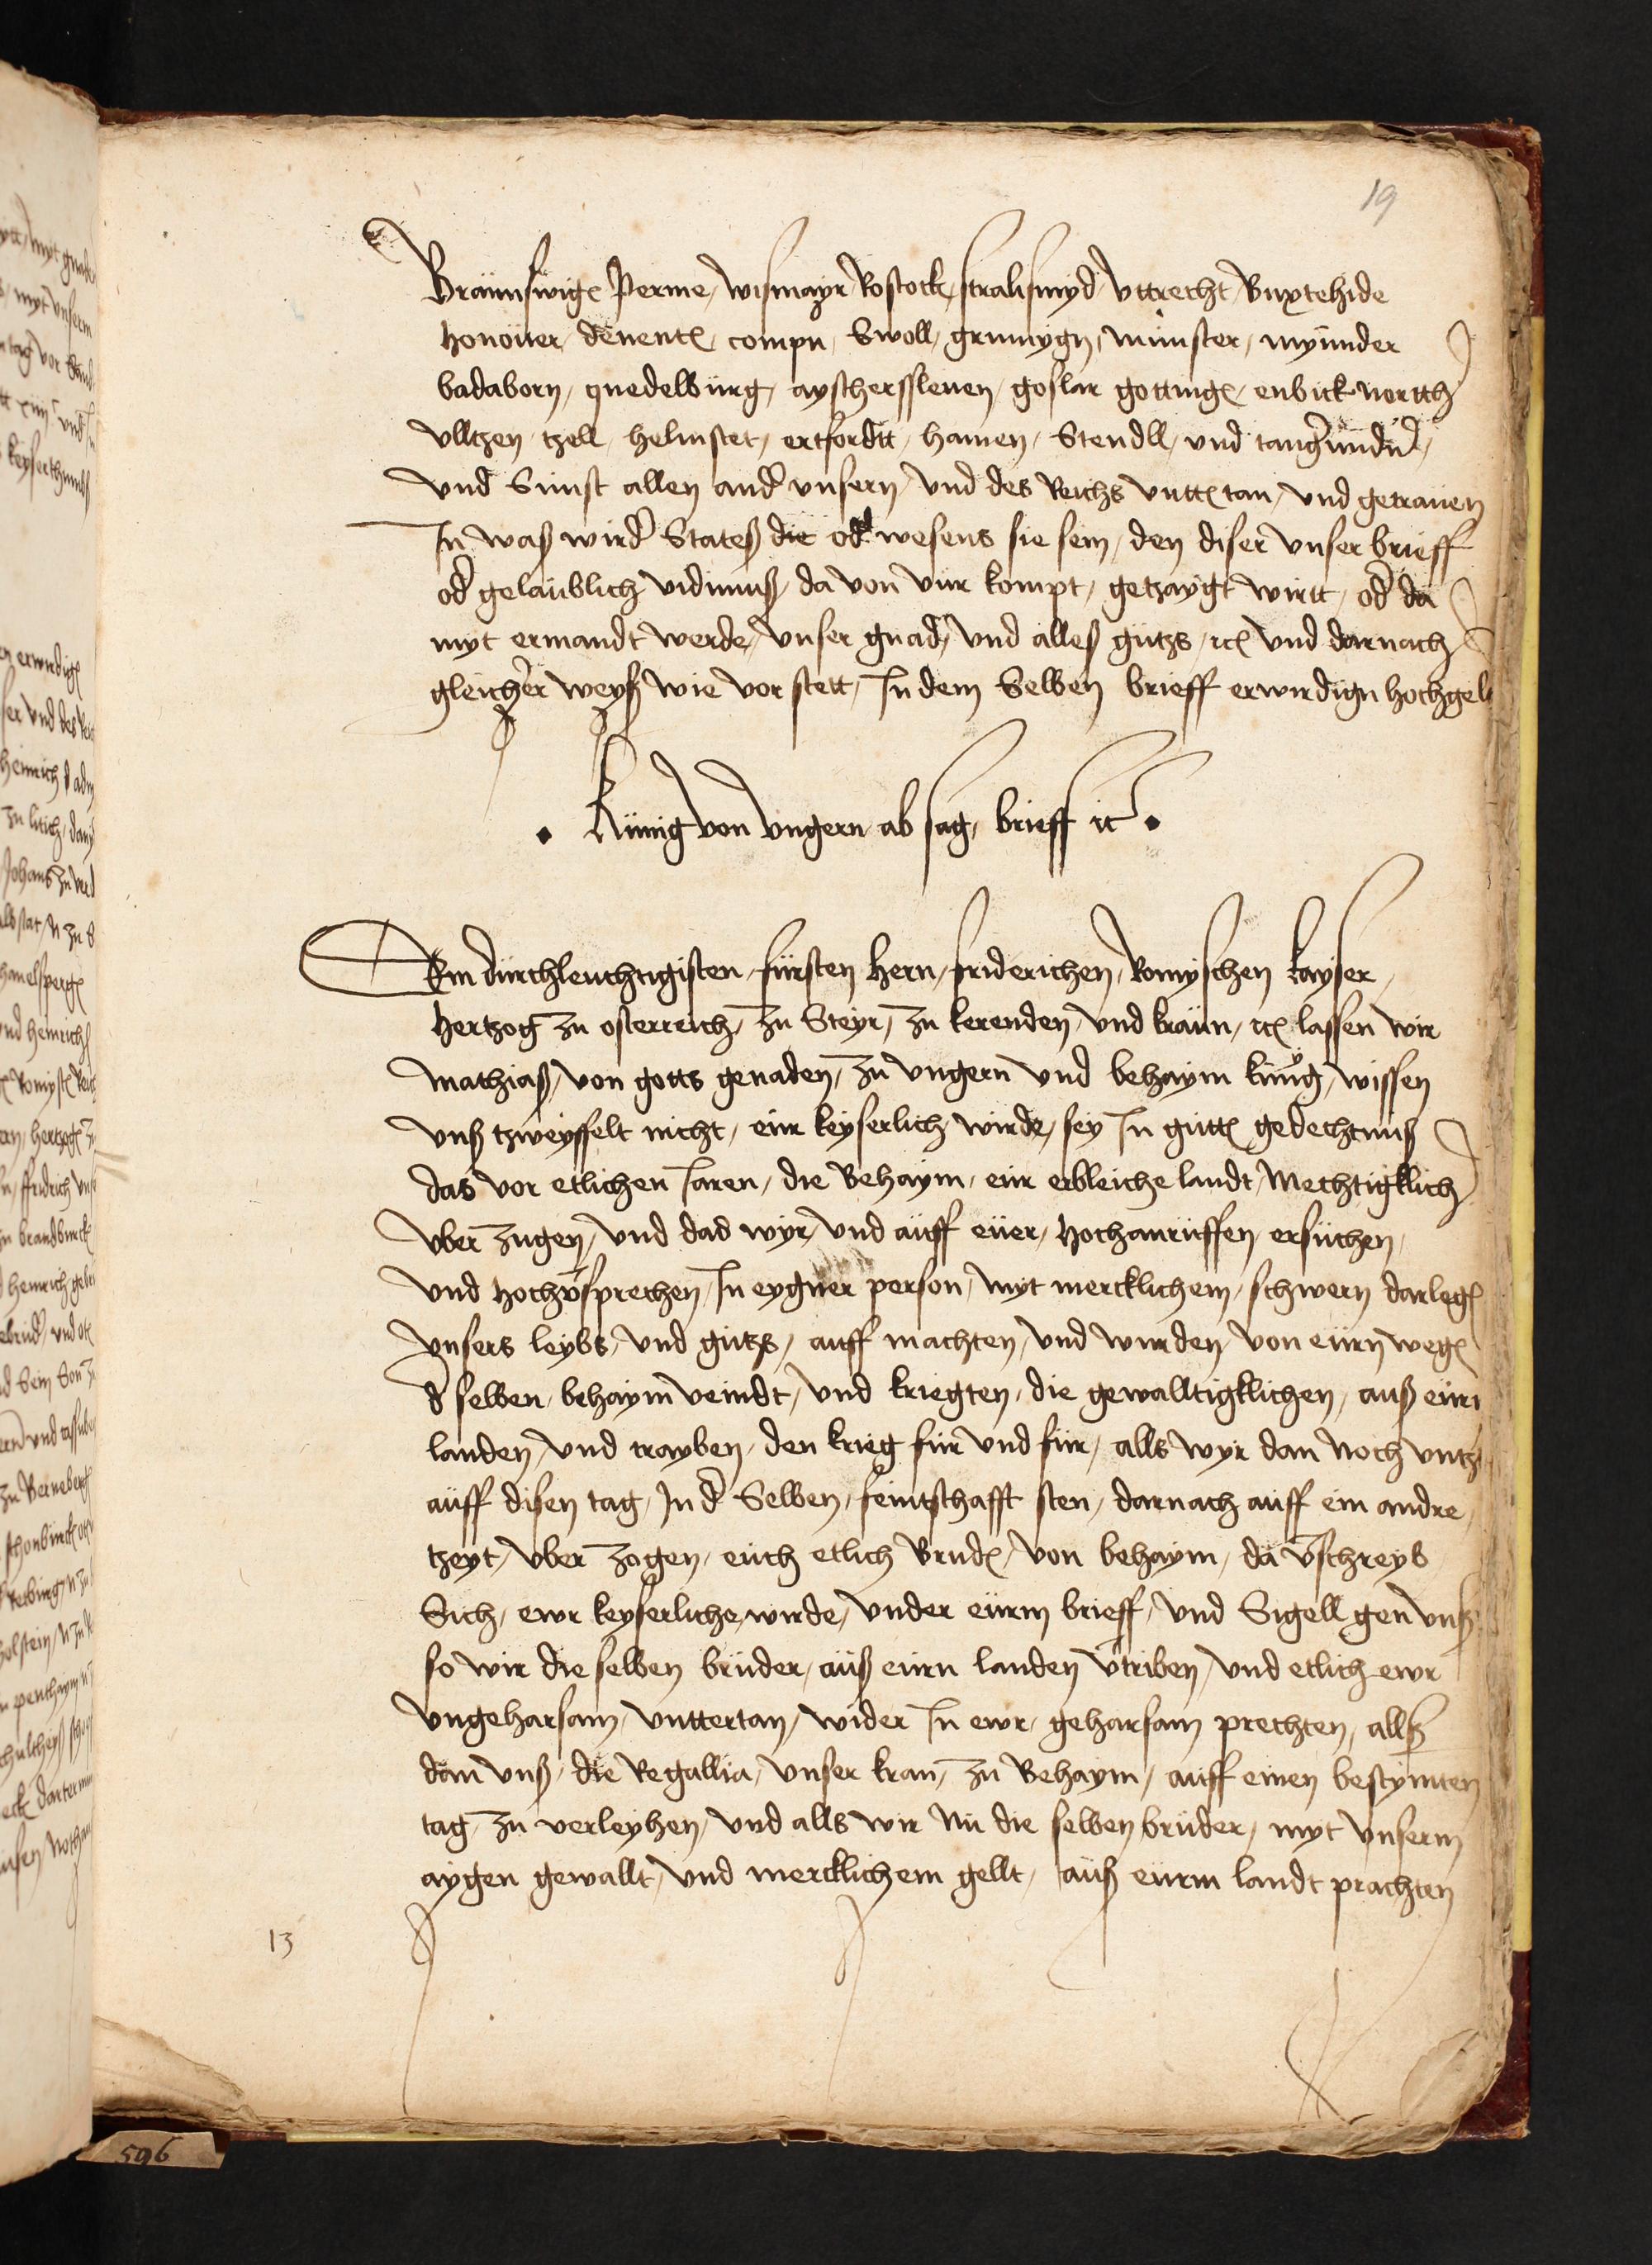 19
Braunswige Perme / wismayr Rostock / stralsmyd / vttrecht / Buxtehide
honouer / deuente / compn / Swoll / grunygn / munster / mynnder
badaborn / quedelburg / ayscherssleuen / goslar gottinge / enbick nortth
vlltzen / tzell / helmstet / ertfordtt / hamen / Stendll / und tangermundn /
und Sunst allen ander unsern / und des Reichs vntter tan / und getrauen
In waß wird States die oder wesens sie sein / den diser unser brieff
oder gelaublich vidimuß / da von vur kompt / getzaygt wirtt / oder da
myt ermandt werde / unser gnad / und alles gutzs / etc und darnach
gleicher weyß wie vor stett / In dem Selben brieff erwirdign hochgeb
• Künig von ungern ab sag / brieff etc •
Dem durchleuchtigisten fursten hern / friderichen / Romyschen kayser /
hertzog zu osterreich / zu Steyr / zu kerenden / und krain / etc lassen wir
mathiaß / von gotts genaden / zu ungern und behaym kung / wissen
unß tzweyffelt nicht / eur keyserlich wirde / sey In gutter gedechtnuß
das vor etlichen Jaren / die Behaym / eur erbleiche landt / Mechtigklich
uber zugen / und das wyr / und auff euer / hochanrueffen ersuchen /
und hochversprechen / In eygner person / myt mercklichem / schwern darlege
unsers leybs / und gutzs / auff machten / und wurden / von eurn wege
der selben behaym veindt / und kriegten / die gewalltigklichen / auß eurn
landen / und trayben / den krieg fur und fur / alls wyr dan noch untz
auff disen tag / In der Selben / feintschafft sten / darnach auff ein andre /
tzeyt / uber zogen / euch etlich Bruder / von behaym / da verschreyb
Sich / ewr keyserliche wirde / under eurm brieff / und Sigell gen unß
so wir die selben bruder / auß eurn landen vertriben / und etlich ewr
ungeharsam / unttertan / wider In ewr / geharsam prechten / allß
dan unß / die Regallia / unser kran / zu Behaym / auff einen bestymten
tag / zu verleyhen / und alls wir Nu die selben bruder / myt unserm
aygen gewallt / und mercklichem gellt / auß eurm landt prachten
13
596